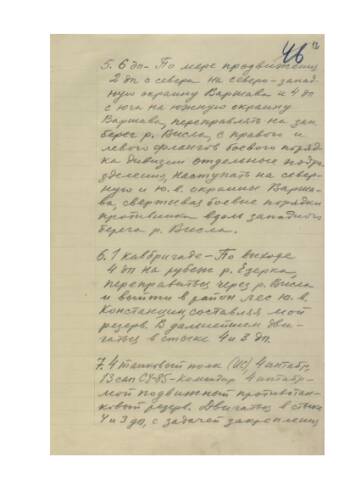 46
12
5. 6 дп - По мере продвижения
2 дп с севера на северо-запад-
ную окраину Варшава и 4 дп
с юга на южную окраину
Варшава, переправлять на зап.
берег р. Висла, с правого и
левого флангов боевого поряд-
ка дивизии отдельные подра-
зделения, наступать на север-
ную и ю.в. окраины Варша-
ва, свертывая боевые порядки
противника вдоль западного
берега р. Висла.
6. 1 кавбригаде - По выходе
4 дп на рубеж р. Езерка,
переправиться через р. Висла
и выйти в район лес ю.в.
Констанцин, составляя мой
резерв. В дальнейшем дви-
гаться в стыке 4 и 3 дп.
7. 4 танковый полк (ИС) 4 иптабр,
13 сап СУ-85 - командир 4 иптабр -
мой подвижный противотан-
ковый резерв. Двигаться в стыке
4 и 3 дп, с задачей закрепления